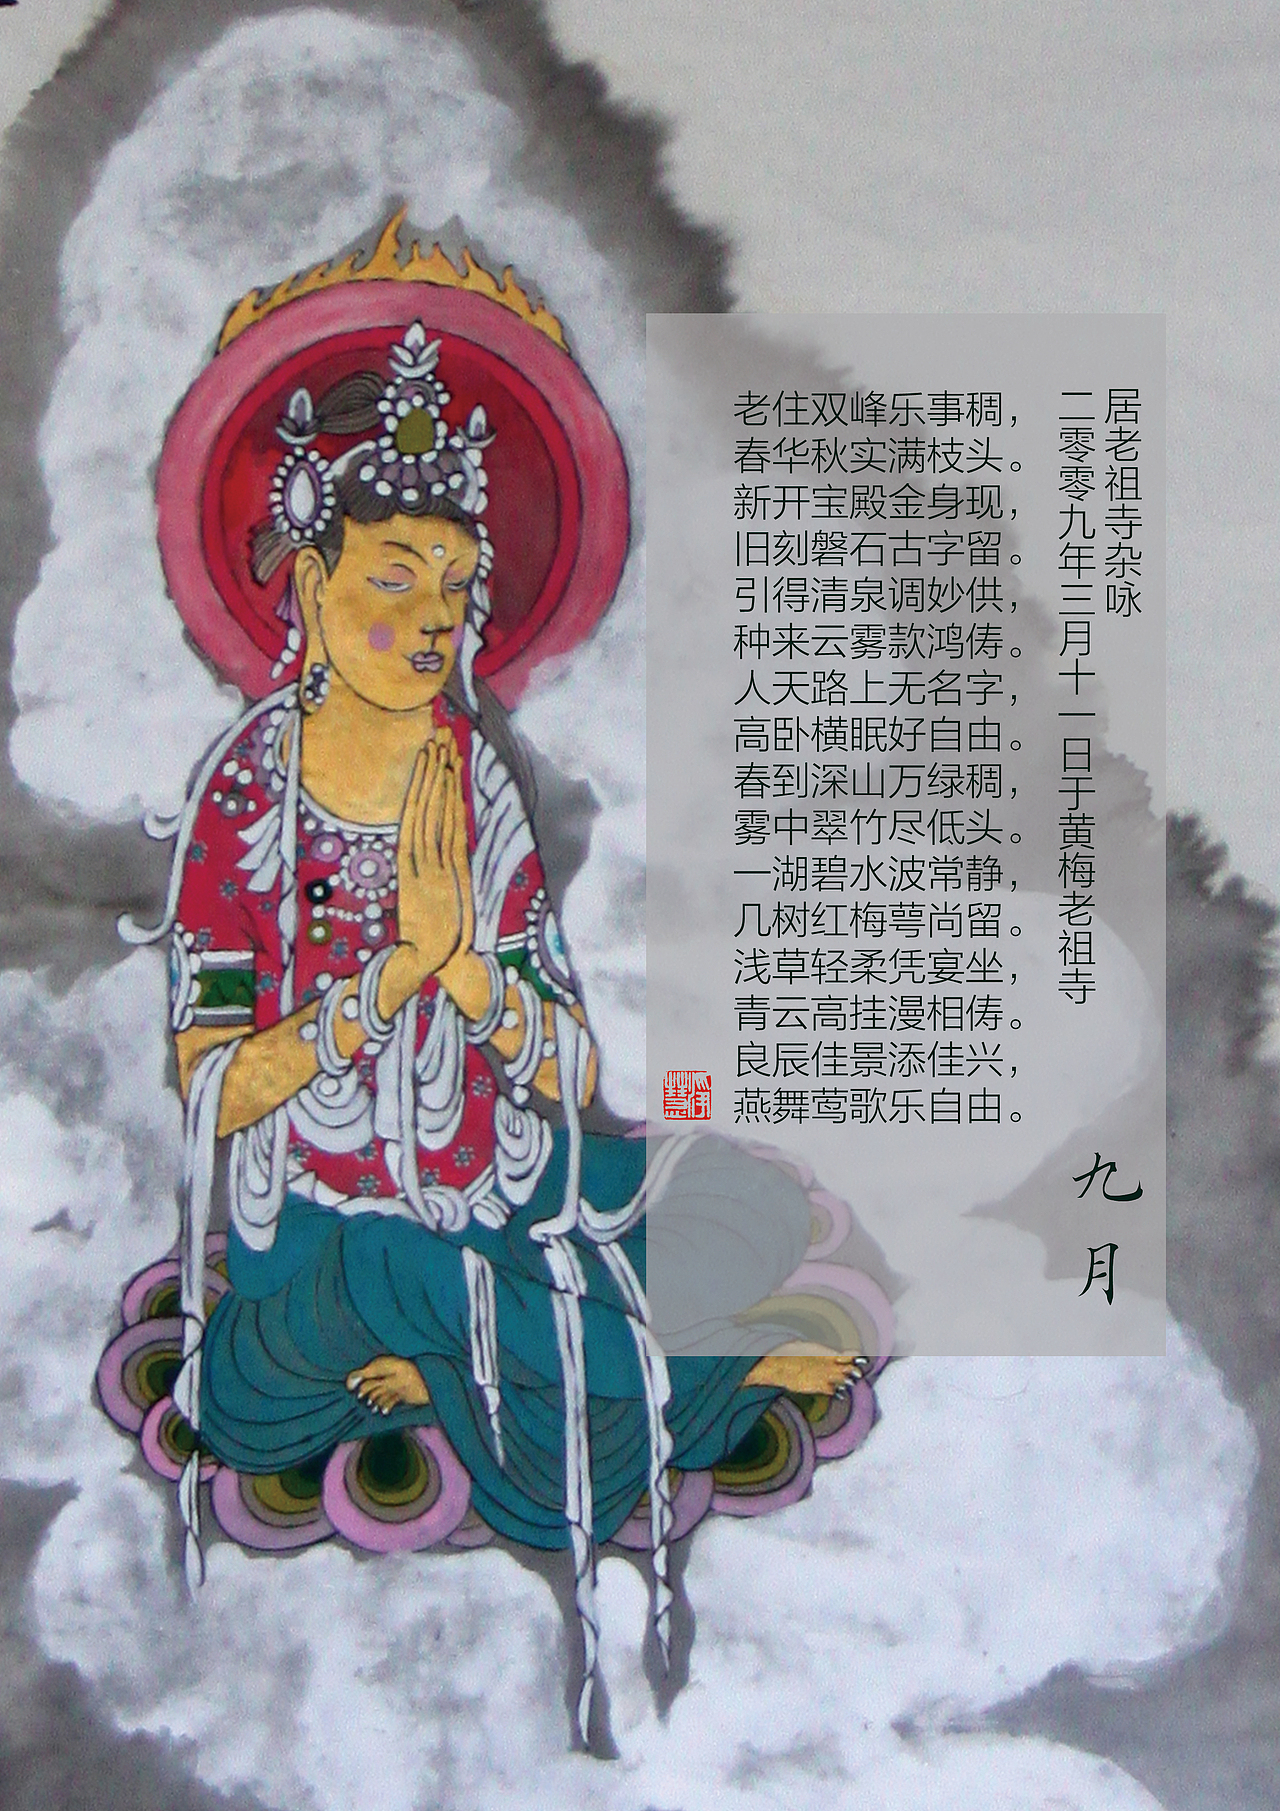 居老祖寺杂咏
二零零九年三月十一日于黄梅老祖寺
老住双峰乐事稠，
春华秋实满枝头。
新开宝殿金身现，
旧刻磐石古字留。
引得清泉调妙供，
种来云雾款鸿俦。
人天路上无名字，
高卧横眠好自由。
春到深山万绿稠，
雾中翠竹尽低头。
一湖碧水波常静，
几树红梅萼尚留。
浅草轻柔凭宴坐，
青云高挂漫相俦。
良辰佳景添佳兴，
燕舞莺歌乐自由。
九月